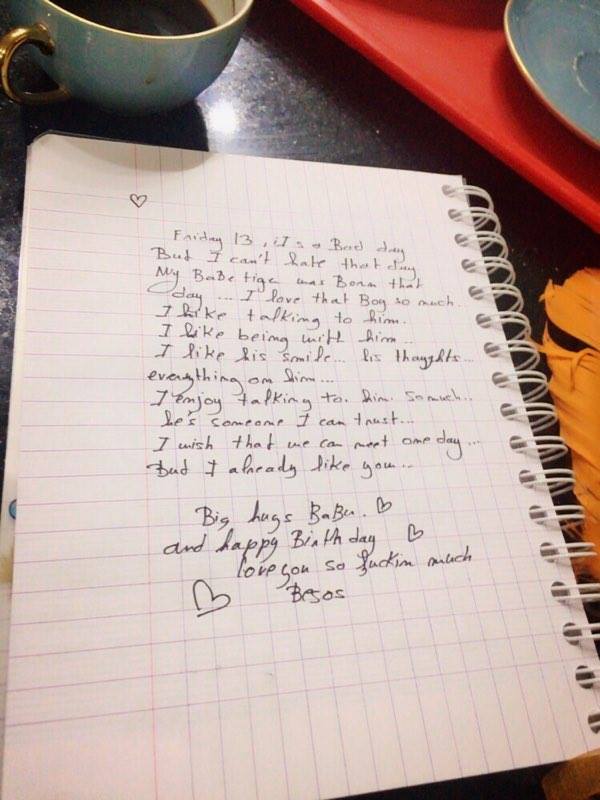 Friday 13, it's a Bad day
But I can't hate that day
My BaBe tige was Born that
day ... I love that Boy so much.
I like talking to him.
I like being with him...
I like his smile... his thoughts...
everything on him...
I enjoy talking to him so much..
he's someone I can trust...
I wish that we can meet one day...
But I already like you...
Big hugs BaBu.
and happy Birthday
love you so fuckin much
Besos